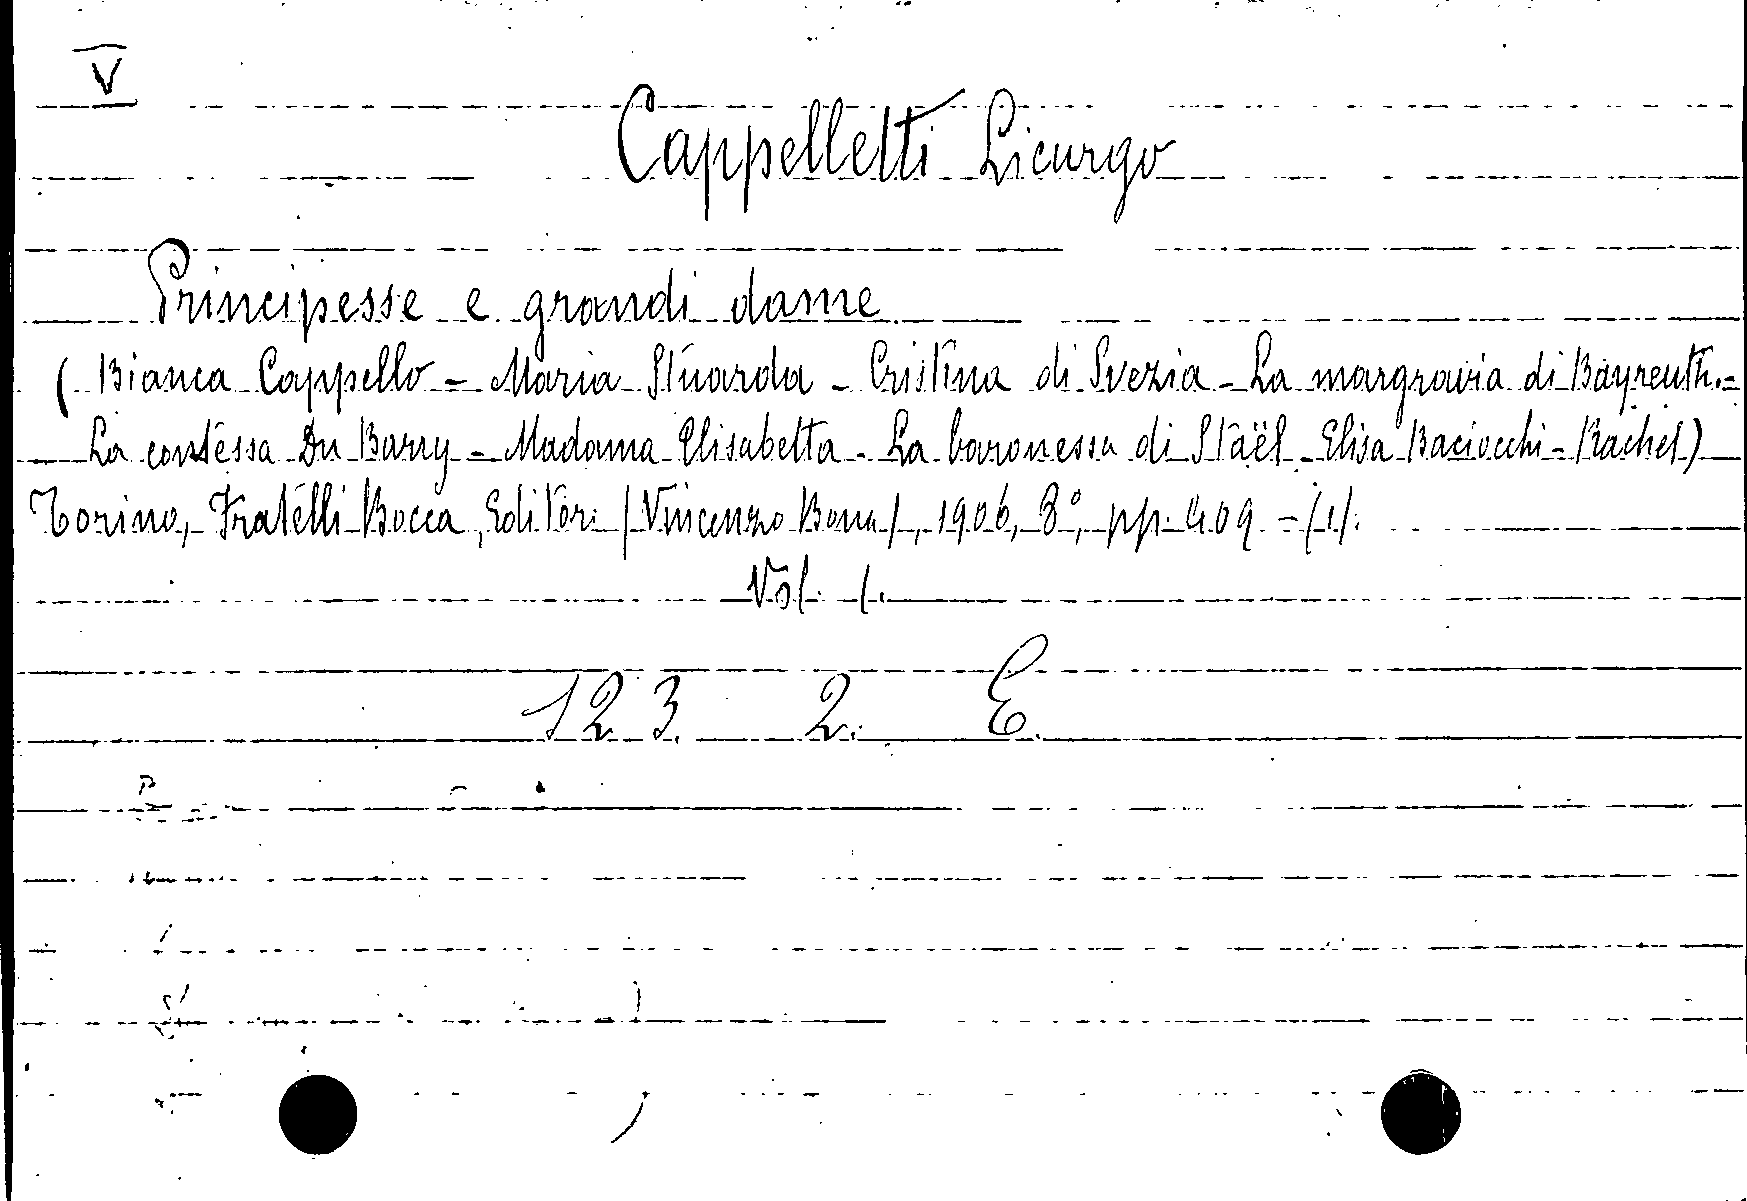 V
Cappelletti Licurgo
Principesse e grandi dame
(Bianca Cappello - Maria Stuarda - Cristina di Svezia - La margravia di Bayreuth. -
La contessa Du Barry - Madama Elisabetta - La baronessa di Staël - Elisa Baciocchi - Rachel)
Torino, Fratelli Bocca, Editori (Vincenzo Bona), 1906, 8°, pp. 409 - (1).
Vol. 1.
123. 2. E.